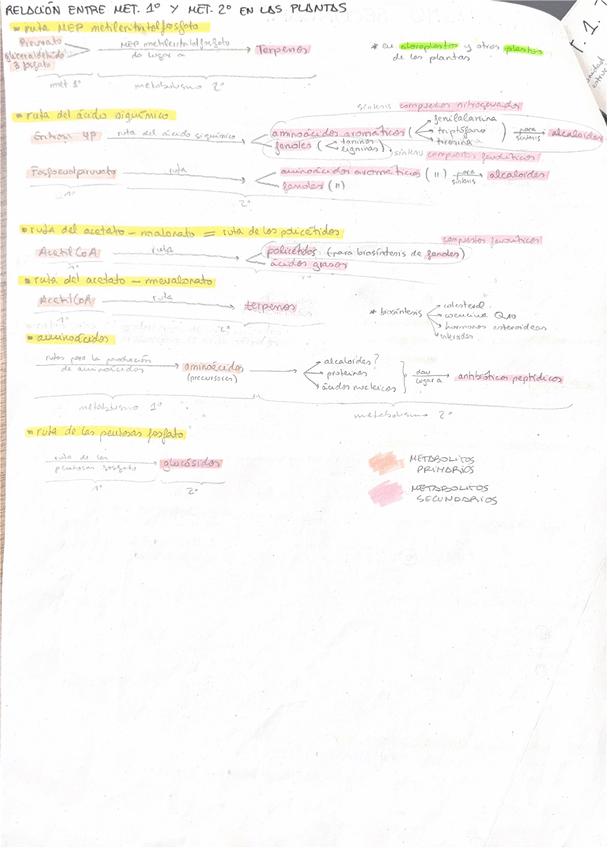 RELACIÓN ENTRE MET. 1º Y MET. 2º EN LAS PLANTAS
* ruta MEP metileritritolfosfato
Piruvato
gliceraldehído
3 fosfato
MEP metileritritolfosfato
da lugar a
Terpenos
* en cloroplastos y otros plastos
de las plantas
met 1º
metabolismo 2º
* ruta del ácido siquímico
síntesis compuestos nitrogenados
Eritrosa 4P
ruta del ácido siquímico
aminoácidos aromáticos
fenilalanina
triptófano
tirosina
para síntesis
alcaloides
fenoles (taninos
ligninas)
síntesis compuestos fenólicos
Fosfoenolpiruvato
ruta
aminoácidos aromáticos (")
para síntesis
alcaloides
fenoles (")
1º
2º
* ruta del acetato - malonato = ruta de los policétidos
compuestos fenólicos
Acetil CoA
ruta
policétidos (para biosíntesis de fenoles)
ácidos grasos
1º
2º
* ruta del acetato - mevalonato
Acetil CoA
ruta
terpenos
1º
2º
* biosíntesis
colesterol
coencima Q10
hormonas esteroideas
* aminoácidos
rutas para la producción
de aminoácidos
aminoácidos
(precursores)
alcaloides?
proteínas
ácidos nucleicos
dan
lugar a
antibióticos peptídicos
metabolismo 1º
metabolismo 2º
* ruta de las pentosas fosfato
ruta de las
pentosas fosfato
glucósidos
1º
2º
METABOLITOS
PRIMARIOS
METABOLITOS
SECUNDARIOS